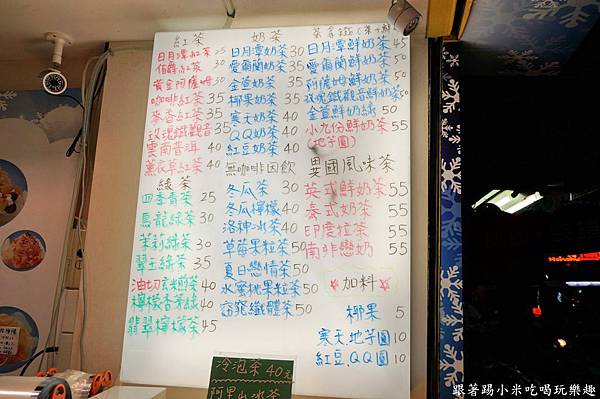 紅茶
日月潭紅茶 35
伯爵紅茶 30
黃金阿薩姆 35
咖啡紅茶 35
麥香紅茶 35
玫瑰鐵觀音 35
雲南普洱 40
薰衣草紅茶 40
綠茶
四季青茶 25
烏龍綠茶 30
茉莉綠茶 30
翠玉綠茶 35
油切玄煎茶 40
檸檬香茅綠 40
翡翠檸檬茶 45
奶茶
日月潭奶茶 30
愛爾蘭奶茶 35
金萱奶茶 35
椰果奶茶 35
寒天奶茶 40
QQ奶茶 40
紅豆奶茶 40
無咖啡因飲
冬瓜茶 30
冬瓜檸檬 40
洛神冰茶 40
草莓果粒茶 50
夏日戀情茶 50
水蜜桃果粒茶 50
窈窕纖體茶 50
日月潭鮮奶茶 45
愛爾蘭鮮奶茶 50
阿薩姆鮮奶茶 50
玫瑰鐵觀音鮮奶茶 50
金萱鮮奶綠 50
小九份鮮奶茶 55
(地芋圓)
異國風味茶
英式鮮奶茶 55
泰式奶茶 55
印度拉茶 55
南非戀奶 55
加料
椰果 5
寒天、地芋圓 10
紅豆、QQ圓 10
冷泡茶 40元
阿里山冰茶
跟著踢小米吃喝玩樂趣